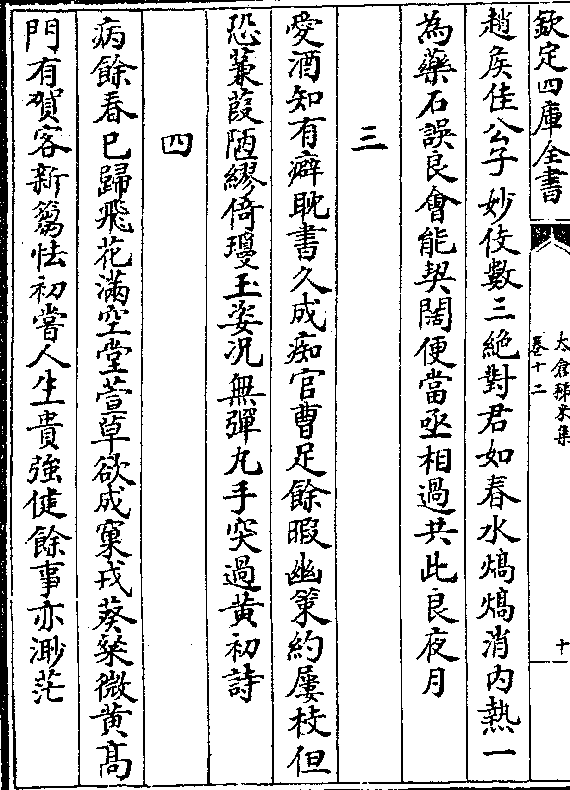 欽定四庫全書
太倉稊米集
卷十二
十
趙侯佳公子妙伎數三絶對君如春水熇熇消内熱一
為藥石誤良會能契闊便當亟相過共此良夜月
三
愛酒知有癖耽書久成痴官曹足餘暇幽䇿約屢枝但
恐蒹葭陋繆倚瓊玉姿况無彈丸手突過黄初詩
四
病餘春已歸飛花滿空堂萱草欲成窠戎葵粲微黄高
門有賀客新篘怯初嘗人生貴強健餘事亦渺茫